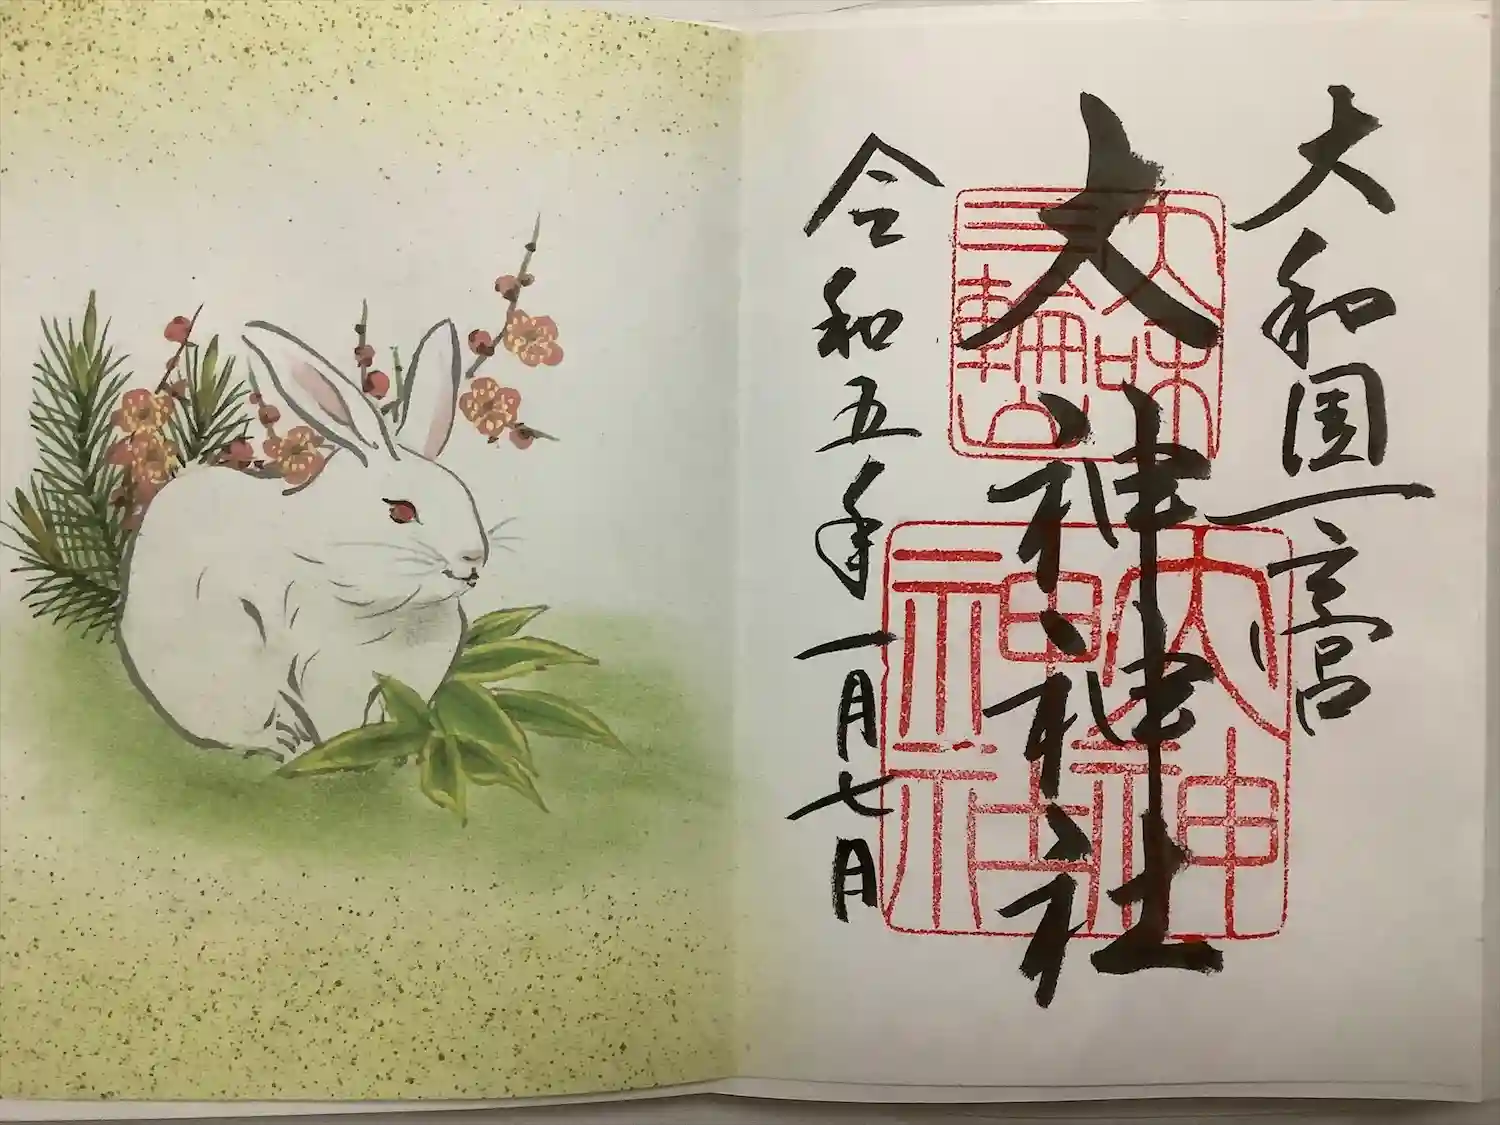 大和国一宮
大神神社
三輪山
大神
神社
令和五年一月七日